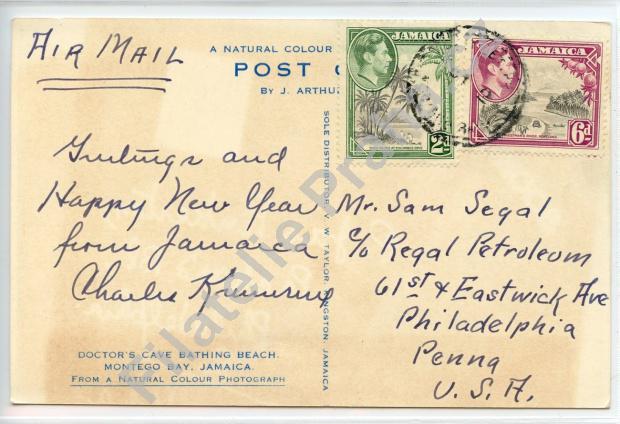 AIR MAIL
A NATURAL COLOUR
POST
BY J. ARTHUR
JAMAICA
2d
JAMAICA
6d
Greetings and
Happy New Year
from Jamaica
Charles
Mr. Sam Segal
c/o Regal Petroleum
61st & Eastwick Ave
Philadelphia
Penna
U.S.A.
SOLE DISTRIBUTOR V. W. TAYLOR, KINGSTON, JAMAICA
DOCTOR'S CAVE BATHING BEACH.
MONTEGO BAY, JAMAICA.
FROM A NATURAL COLOUR PHOTOGRAPH